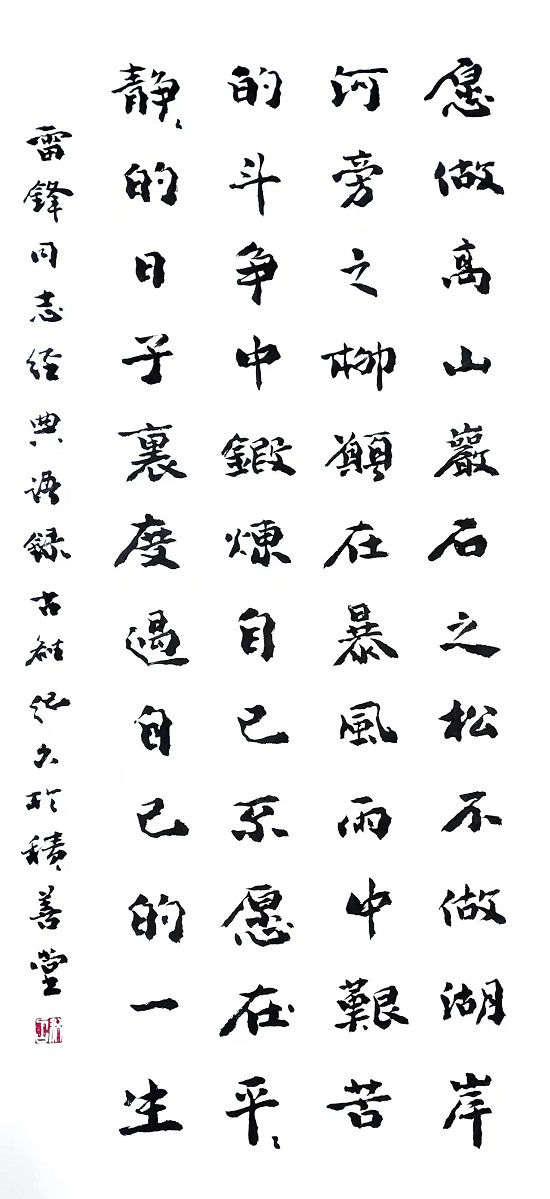 愿做高山巖石之松不做湖岸
河旁之柳願在暴風雨中艱苦
的斗争中鍛煉自己不愿在平〻
静〻的日子裏度過自己的一生
雷鋒同志经典语録古於積善堂